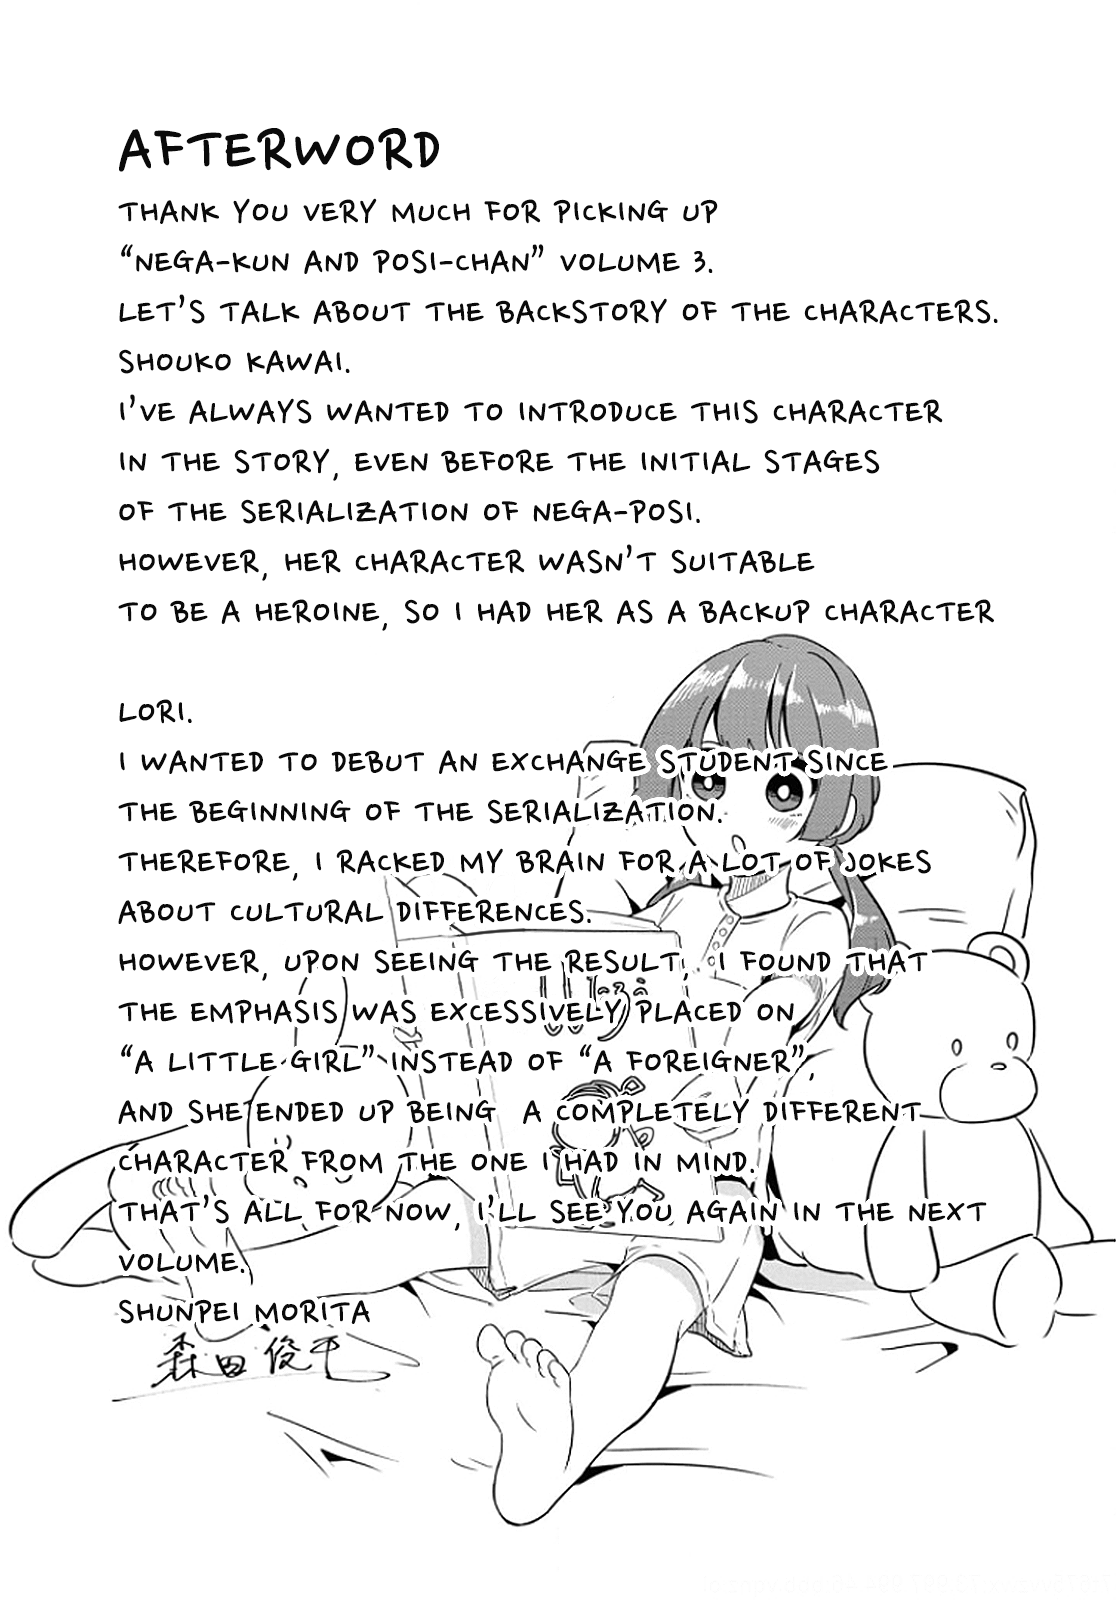 AFTERWORD
THANK YOU VERY MUCH FOR PICKING UP
“NEGA-KUN AND POSI-CHAN” VOLUME 3.
LET’S TALK ABOUT THE BACKSTORY OF THE CHARACTERS.
SHOUKO KAWAI.
I’VE ALWAYS WANTED TO INTRODUCE THIS CHARACTER
IN THE STORY, EVEN BEFORE THE INITIAL STAGES
OF THE SERIALIZATION OF NEGA-POSI.
HOWEVER, HER CHARACTER WASN’T SUITABLE
TO BE A HEROINE, SO I HAD HER AS A BACKUP CHARACTER
LORI.
I WANTED TO DEBUT AN EXCHANGE STUDENT SINCE
THE BEGINNING OF THE SERIALIZATION.
THEREFORE, I RACKED MY BRAIN FOR A LOT OF JOKES
ABOUT CULTURAL DIFFERENCES.
HOWEVER, UPON SEEING THE RESULT, I FOUND THAT
THE EMPHASIS WAS EXCESSIVELY PLACED ON
“A LITTLE GIRL” INSTEAD OF “A FOREIGNER”,
AND SHE ENDED UP BEING A COMPLETELY DIFFERENT
CHARACTER FROM THE ONE I HAD IN MIND.
THAT’S ALL FOR NOW, I’LL SEE YOU AGAIN IN THE NEXT
VOLUME.
SHUNPEI MORITA
森田 俊平